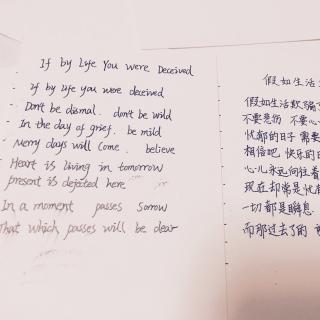 If by Life You were Deceived
If by life you were deceived
Don't be dismal. don't be wild
In the day of grief. be mild
Merry days will come. believe
Heart is living in tomorrow
present is dejected here
In a moment passes sorrow
That which passes will be dear
假如生活
假如生活欺骗了
不要悲伤 不要心
忧郁的日子 需要
相信吧 快乐的日
心儿永远向往着
现在却常是忧
一切都是瞬息
而那过去了的